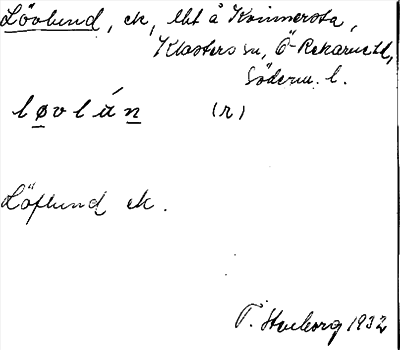 Lövlund, ek, lht å Kvinnersta,
Klosters sn, Ö-Rekarne hd,
Söderm. l.
løvlún (r)
Löflund ek.
1932